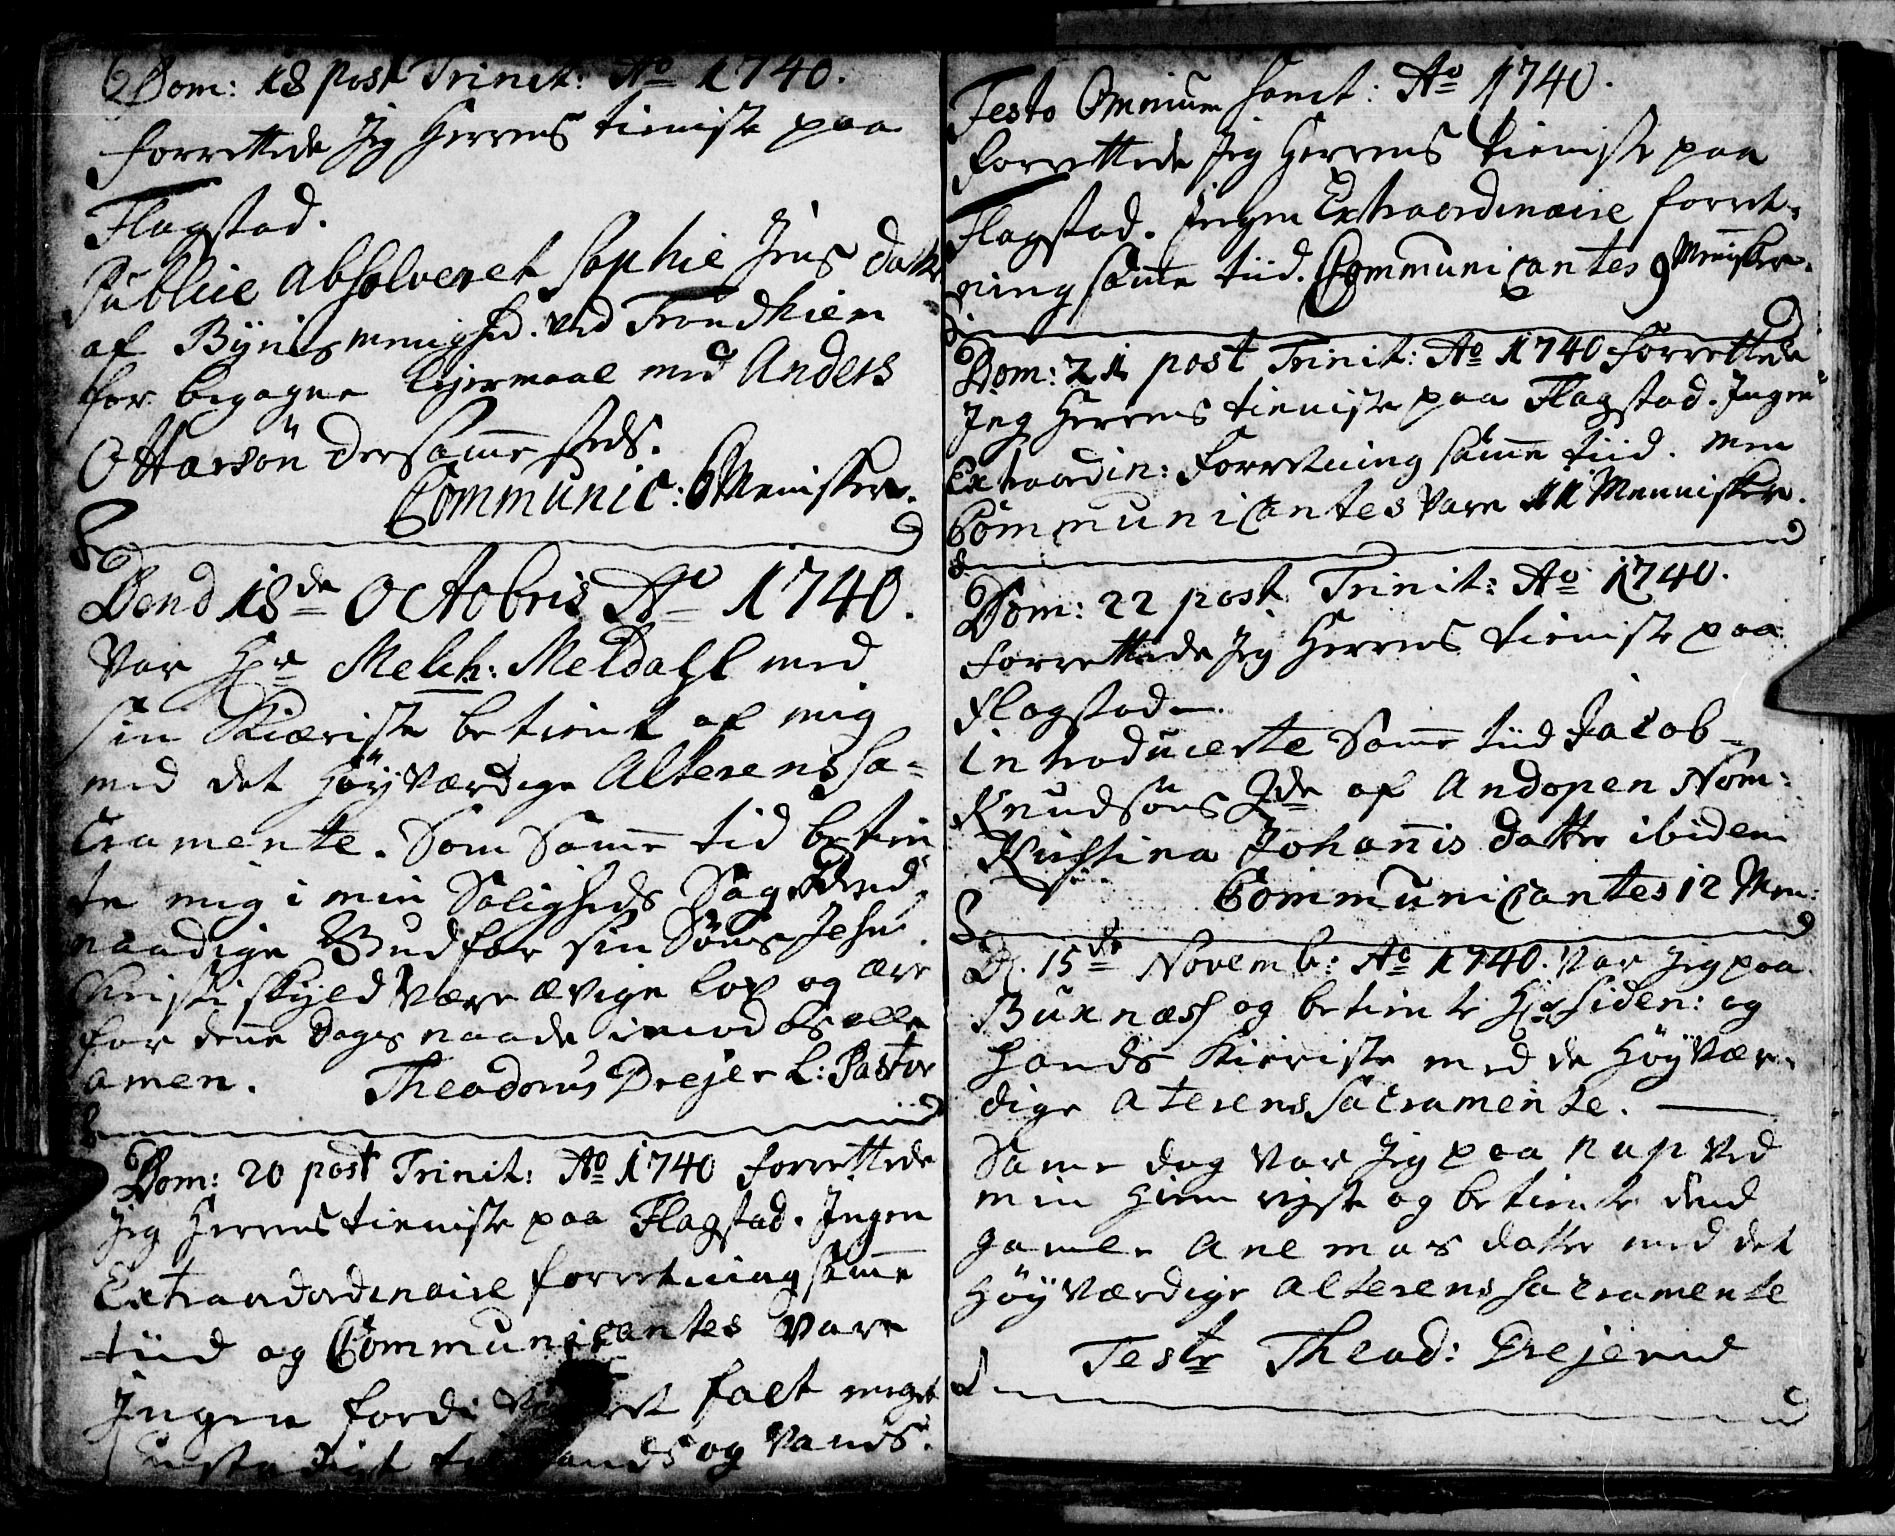 Dom: 18 post Trinit: Ao 1740.
forrettede Jeg Herrens tieniste paa
Flagstad.
Publice absolveret Sophie Jens datter
af Bÿnes menighed ved Trundhiem
for begagne leÿermaal med Anders
Ottarsön dersamme steds.
Communic: 6 Menisker.
Dend 18de Octobris Ao 1740.
Var Hr Melch: Meldahl med
sin Kiæriste betient af mig
med det HöÿVærdige Alterens Sa=
cramente. Som Same tid betien
te mig i min Saligheds Sag. Dend
naadige Gud for sin Söns Jesu
Christi skyld være ævige lov og ære
for dene dags naade imod os alle
amen. Theodorus Drejer L: Pastor
Dom: 20 post Trinit: Ao 1740 forrettede
Jeg Herrens tieniste paa Flagstad. Ingen
Extraordordinaire forretning same
tiid og Communicantes Vare
Ingen fordi falt meget
ustadigt til Lands og Vands.
Festo Omnium Sanct: Ao 1740.
forrettede Jeg Herrens tieniste paa
Flagstad. Ingen Extraordinaire forret=
ning same tiid. Communicantes 9 Menisker.
Dom: 21 post Trinit: Ao 1740 forrettede
Jeg Herrens tieniste paa Flagstad. Ingen
Extraordin: forretning same tiid. men
Communicantes Vare 11 Mennisker.
Dom: 22 post Trinit: Ao 1740.
forrettede Jeg Herrens tieniste paa
Flagstad.
introducerte Same tiid Jacob
Knudsöns af Andopen Nom:
Kirstina Johanis datter ibidem
Communicantes 12 Men:
D. 15de Novemb: Ao 1740. Var Jeg paa
Buxnæs og betiente Hr Siden: og
hands Kieriste med de HöÿVær=
dige Aterens Sacramente.
Same dag Var Jeg paa Nap Ved
min Hiem reÿse og betiente dend
gamle Ane mas datter med det
HöÿVærdige Alterens Sacramente
Teste Theod: Drejer